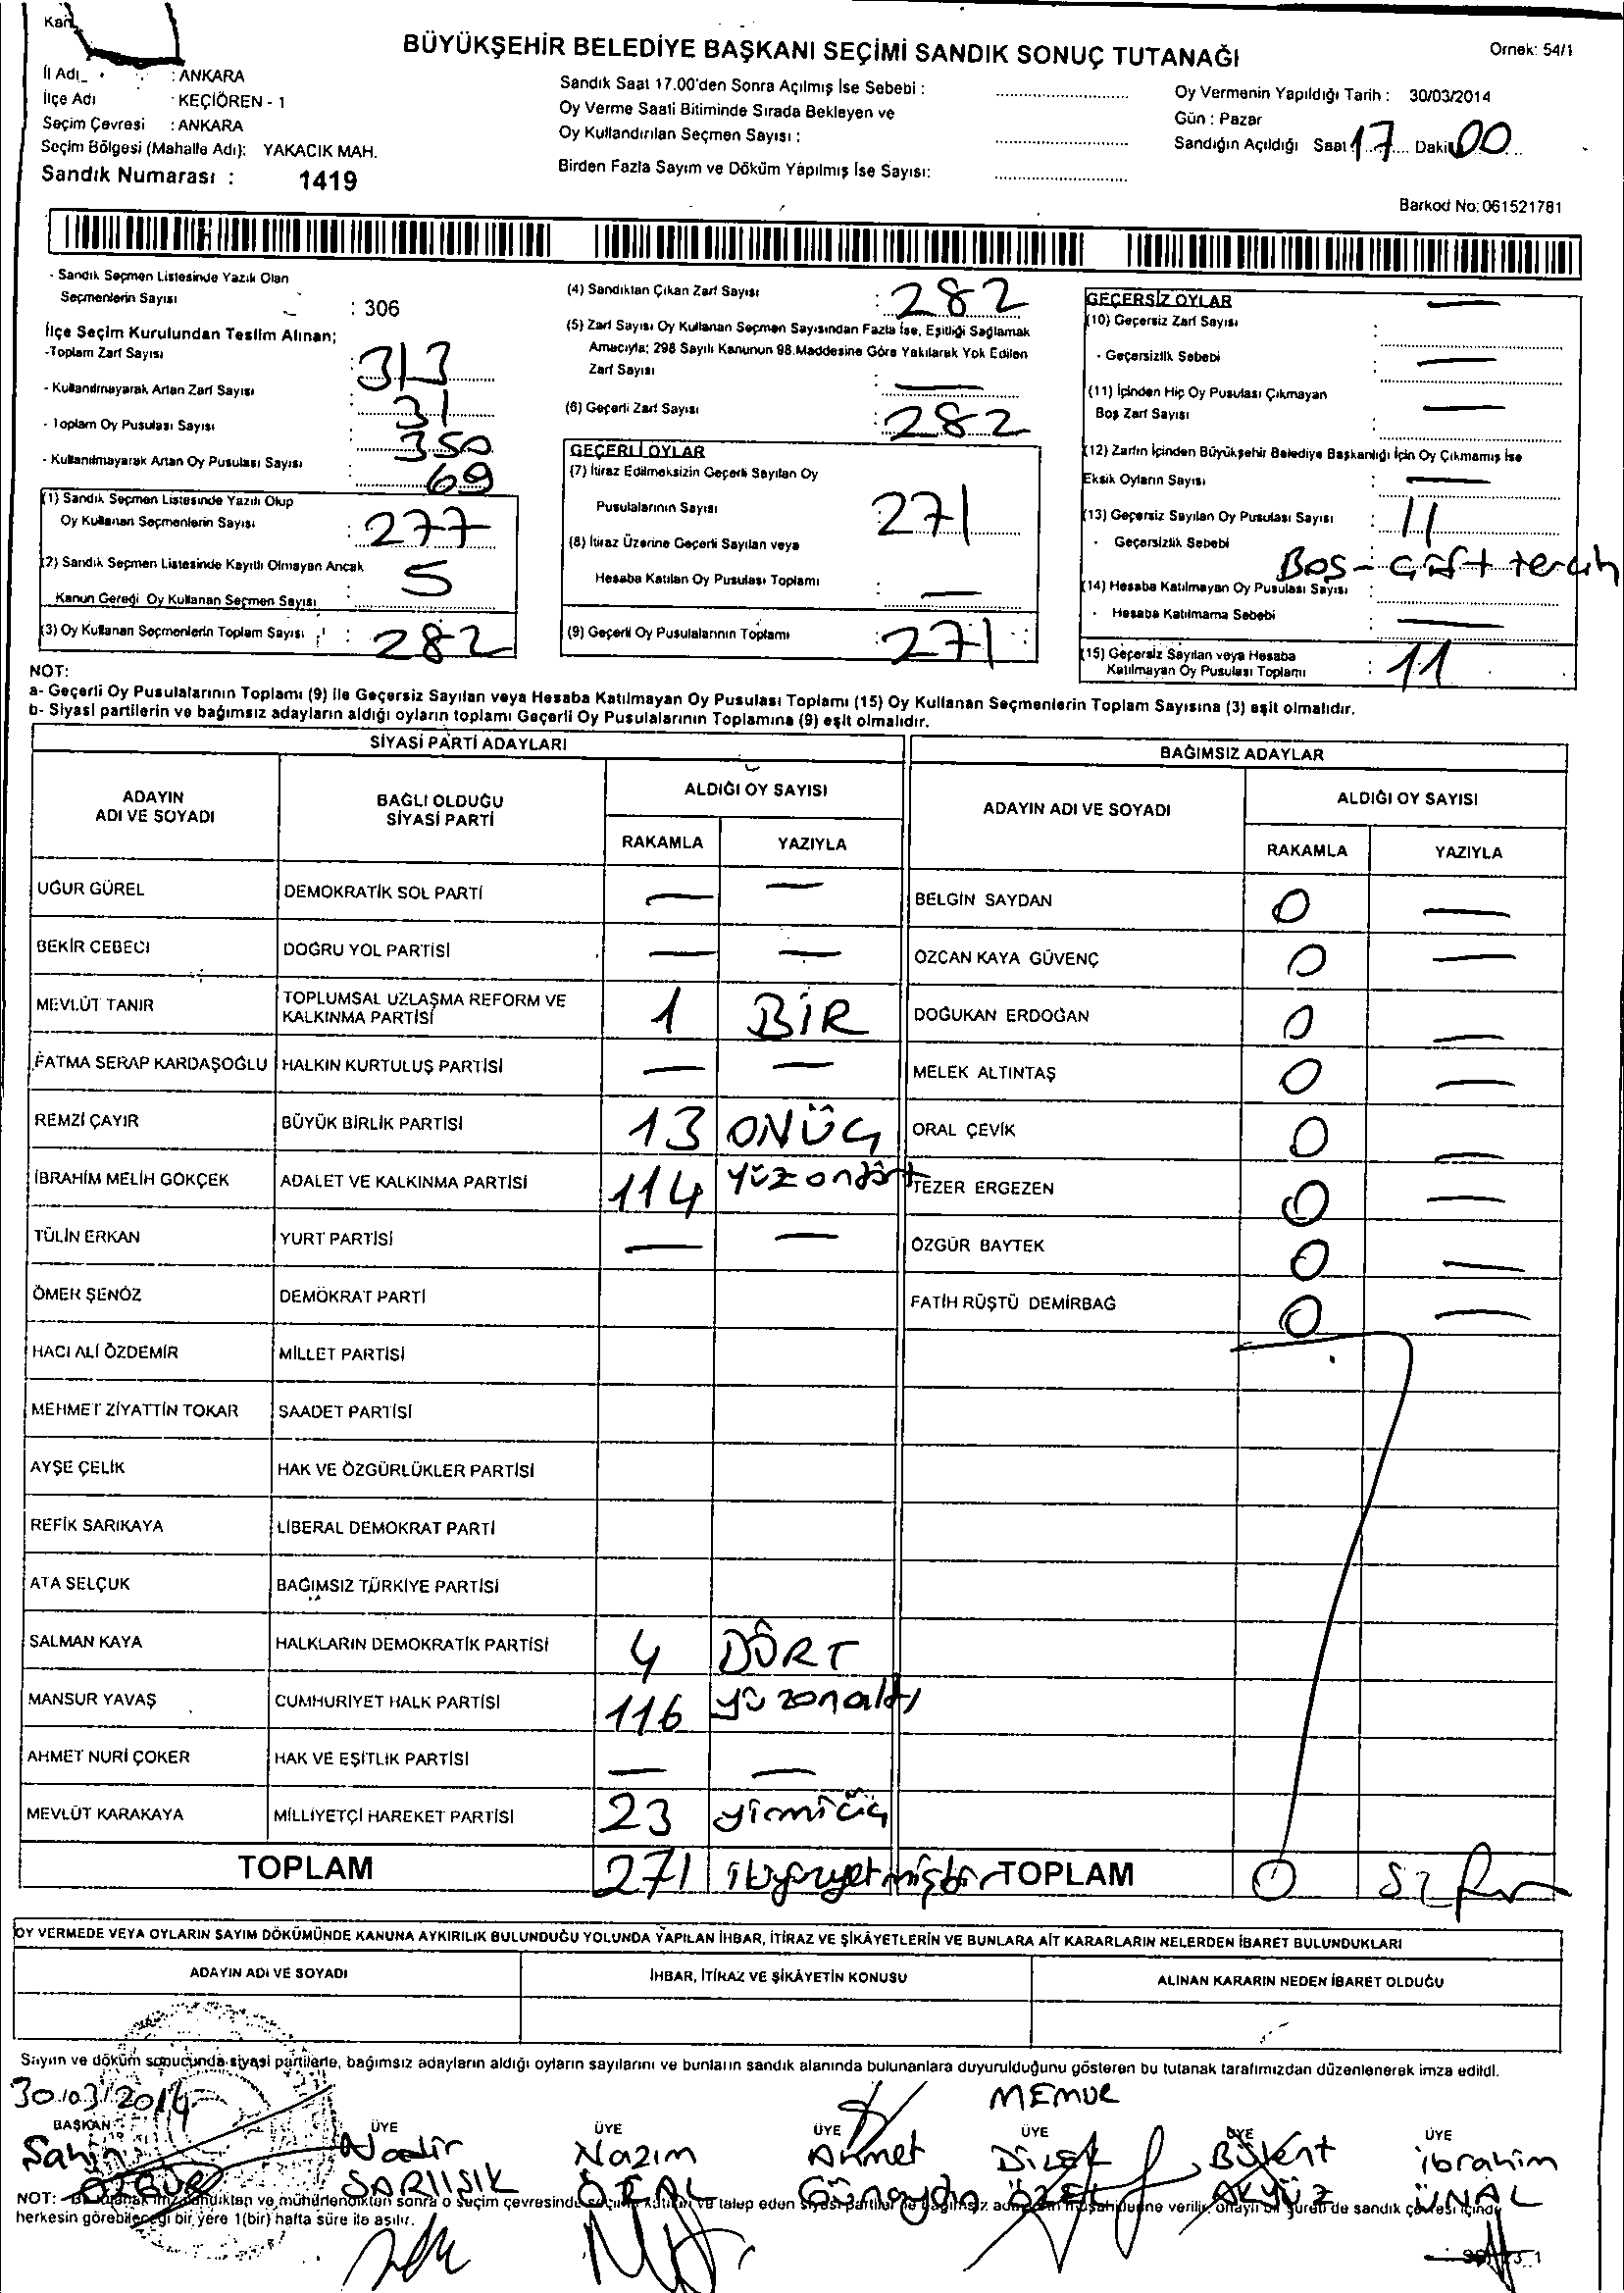 BÜYÜKŞEHİR BELEDİYE BAŞKANI SEÇİMİ SANDIK SONUÇ TUTANAĞI
Örnek: 54/1
İl Adı : ANKARA
İlçe Adı : KEÇİÖREN - 1
Seçim Çevresi : ANKARA
Seçim Bölgesi (Mahalle Adı): YAKACIK MAH.
Sandık Numarası : 1419
Sandık Saat 17.00'den Sonra Açılmış İse Sebebi :
Oy Verme Saati Bitiminde Sırada Bekleyen ve
Oy Kullandırılan Seçmen Sayısı :
Birden Fazla Sayım ve Döküm Yapılmış İse Sayısı:
Oy Vermenin Yapıldığı Tarih : 30/03/2014
Gün : Pazar
Sandığın Açıldığı Saat 17 Daki 00
Barkod No: 061521781
- Sandık Seçmen Listesinde Yazılı Olan
Seçmenlerin Sayısı : 306
İlçe Seçim Kurulundan Teslim Alınan;
-Toplam Zarf Sayısı : 313
- Kullanılmayarak Artan Zarf Sayısı : 31
- Toplam Oy Pusulası Sayısı : 350
- Kullanılmayarak Artan Oy Pusulası Sayısı : 69
(1) Sandık Seçmen Listesinde Yazılı Olup
Oy Kullanan Seçmenlerin Sayısı : 277
(2) Sandık Seçmen Listesinde Kayıtlı Olmayan Ancak
Kanun Gereği Oy Kullanan Seçmen Sayısı : 5
(3) Oy Kullanan Seçmenlerin Toplam Sayısı : 282
(4) Sandıktan Çıkan Zarf Sayısı : 282
(5) Zarf Sayısı Oy Kullanan Seçmen Sayısından Fazla İse, Eşitliği Sağlamak
Amacıyla; 298 Sayılı Kanunun 98.Maddesine Göre Yakılarak Yok Edilen
Zarf Sayısı : —
(6) Geçerli Zarf Sayısı : 282
GEÇERLİ OYLAR
(7) İtiraz Edilmeksizin Geçerli Sayılan Oy
Pusulalarının Sayısı : 271
(8) İtiraz Üzerine Geçerli Sayılan veya
Hesaba Katılan Oy Pusulası Toplamı : —
(9) Geçerli Oy Pusulalarının Toplamı : 271
GEÇERSİZ OYLAR —
(10) Geçersiz Zarf Sayısı :
- Geçersizlik Sebebi —
(11) İçinden Hiç Oy Pusulası Çıkmayan
Boş Zarf Sayısı : —
(12) Zarfın İçinden Büyükşehir Belediye Başkanlığı İçin Oy Çıkmamış İse
Eksik Oyların Sayısı : —
(13) Geçersiz Sayılan Oy Pusulası Sayısı : 11
- Geçersizlik Sebebi Boş - çift tercih
(14) Hesaba Katılmayan Oy Pusulası Sayısı :
- Hesaba Katılmama Sebebi —
(15) Geçersiz Sayılan veya Hesaba
Katılmayan Oy Pusulası Toplamı : 11
NOT:
a- Geçerli Oy Pusulalarının Toplamı (9) ile Geçersiz Sayılan veya Hesaba Katılmayan Oy Pusulası Toplamı (15) Oy Kullanan Seçmenlerin Toplam Sayısına (3) eşit olmalıdır.
b- Siyasi partilerin ve bağımsız adayların aldığı oyların toplamı Geçerli Oy Pusulalarının Toplamına (9) eşit olmalıdır.
SİYASİ PARTİ ADAYLARI
ADAYIN ADI VE SOYADI BAĞLI OLDUĞU SİYASİ PARTİ ALDIĞI OY SAYISI
RAKAMLA YAZIYLA
UĞUR GÜREL DEMOKRATİK SOL PARTİ — —
BEKİR CEBECİ DOĞRU YOL PARTİSİ — —
MEVLÜT TANIR TOPLUMSAL UZLAŞMA REFORM VE KALKINMA PARTİSİ 1 BİR
FATMA SERAP KARDAŞOĞLU HALKIN KURTULUŞ PARTİSİ — —
REMZİ ÇAYIR BÜYÜK BİRLİK PARTİSİ 13 ONÜÇ
İBRAHİM MELİH GÖKÇEK ADALET VE KALKINMA PARTİSİ 114 yüzondört
TÜLİN ERKAN YURT PARTİSİ — —
ÖMER ŞENÖZ DEMOKRAT PARTİ
HACI ALİ ÖZDEMİR MİLLET PARTİSİ
MEHMET ZİYATTİN TOKAR SAADET PARTİSİ
AYŞE ÇELİK HAK VE ÖZGÜRLÜKLER PARTİSİ
REFİK SARIKAYA LİBERAL DEMOKRAT PARTİ
ATA SELÇUK BAĞIMSIZ TÜRKİYE PARTİSİ
SALMAN KAYA HALKLARIN DEMOKRATİK PARTİSİ 4 DÖRT
MANSUR YAVAŞ CUMHURİYET HALK PARTİSİ 116 yüzonaltı
AHMET NURİ ÇOKER HAK VE EŞİTLİK PARTİSİ — —
MEVLÜT KARAKAYA MİLLİYETÇİ HAREKET PARTİSİ 23 yirmiüç
TOPLAM 271 ikiyüzyetmişbir
BAĞIMSIZ ADAYLAR
ADAYIN ADI VE SOYADI ALDIĞI OY SAYISI
RAKAMLA YAZIYLA
BELGİN SAYDAN 0 —
ÖZCAN KAYA GÜVENÇ 0 —
DOĞUKAN ERDOĞAN 0 —
MELEK ALTINTAŞ 0 —
ORAL ÇEVİK 0 —
TEZER ERGEZEN 0 —
ÖZGÜR BAYTEK 0 —
FATİH RÜŞTÜ DEMİRBAĞ 0 —
TOPLAM 0 sıfır
OY VERMEDE VEYA OYLARIN SAYIM DÖKÜMÜNDE KANUNA AYKIRILIK BULUNDUĞU YOLUNDA YAPILAN İHBAR, İTİRAZ VE ŞİKÂYETLERİN VE BUNLARA AİT KARARLARIN NELERDEN İBARET BULUNDUKLARI
ADAYIN ADI VE SOYADI İHBAR, İTİRAZ VE ŞİKÂYETİN KONUSU ALINAN KARARIN NEDEN İBARET OLDUĞU
Sayım ve döküm sonucunda siyasi partilerle, bağımsız adayların aldığı oyların sayılarını ve bunların sandık alanında bulunanlara duyurulduğunu gösteren bu tutanak tarafımızdan düzenlenerek imza edildi.
30/03/2014
MEMUR
BAŞKAN ÜYE ÜYE ÜYE ÜYE ÜYE ÜYE
Şahin Nadir Nazım Ahmet Dilek Bülent ibrahim
ÖZGÜR SARIIŞIK ÖRAL Günaydın ÖZEL AKYÜZ ÜNAL
NOT: sonra o seçim çevresinde talep eden siyasi partiler ile bağımsız verilir, onaylı bir sureti de sandık çevresi içinde
herkesin görebileceği bir yere 1(bir) hafta süre ile asılır.